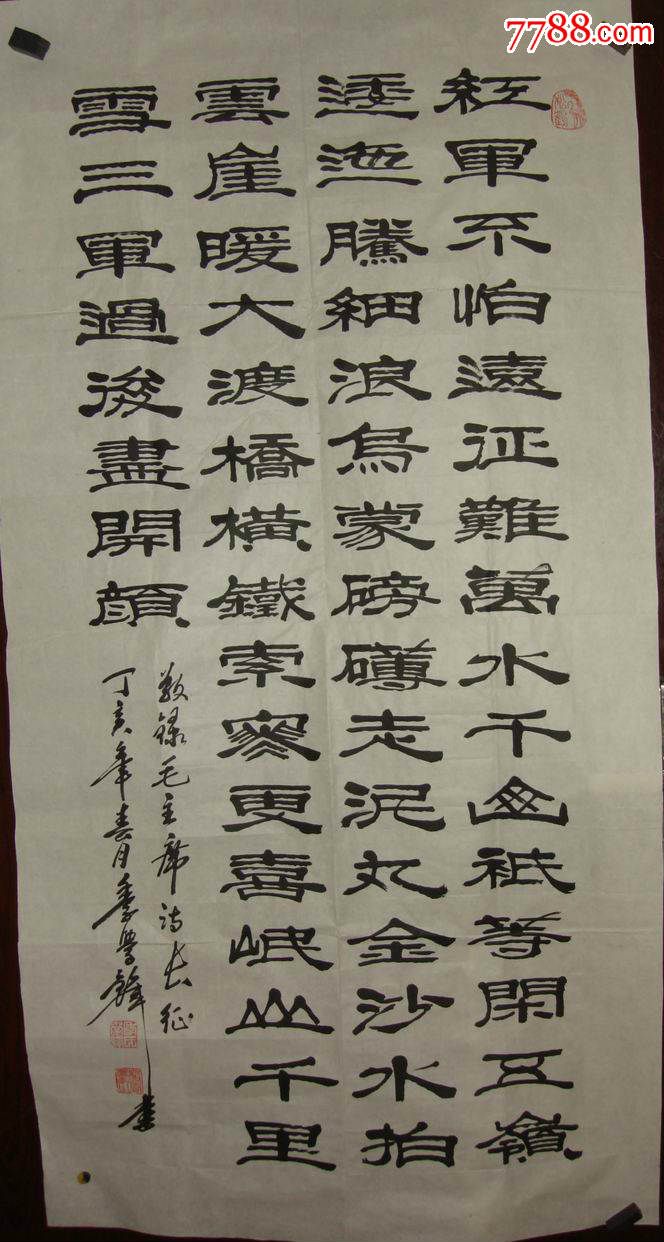 7788.com
紅軍不怕遠征難萬水千山祇等閑五嶺
逶迤騰細浪烏蒙磅礴走泥丸金沙水拍
雲崖暖大渡橋横鐵索寒更喜岷山千里
雪三軍過後盡開顔
敬録毛主席诗长征
丁亥年春月書